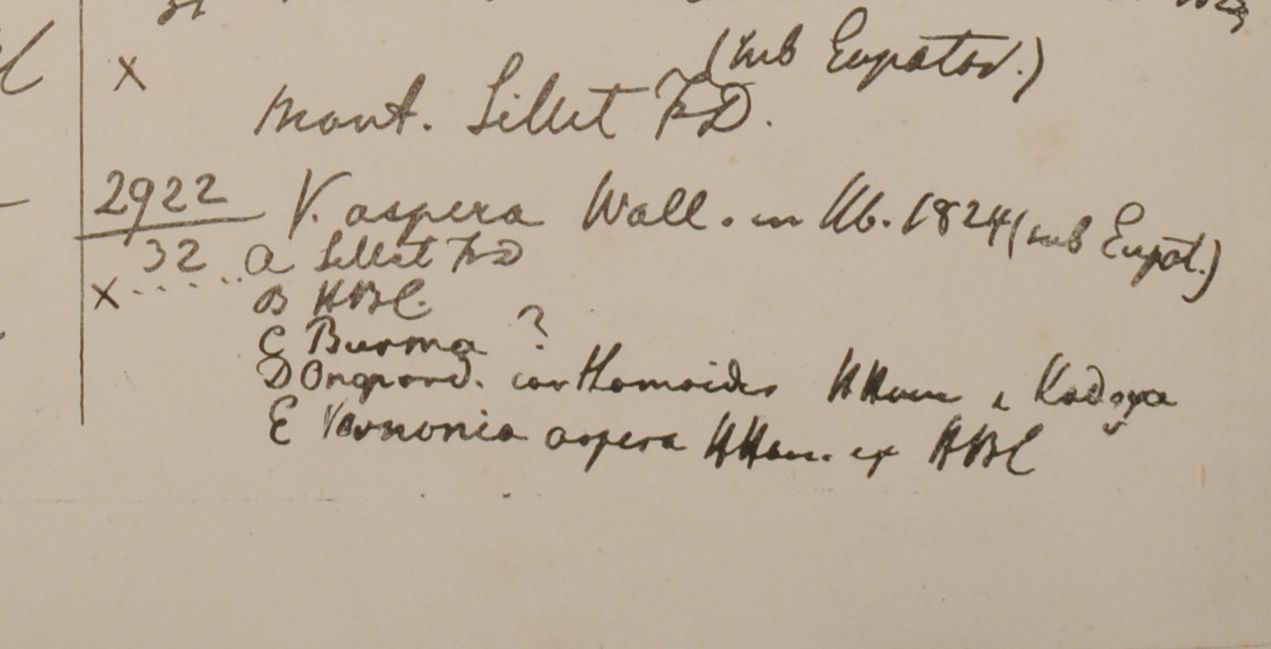 (sub Eupator.)
x
Mont. Sillet FD.
2922 V. aspera Wall. in Hb. 1824 (sub Eupat.)
32 a Sillet FD
x ..... B HBC.
C Burma ?
D Onopord. carthamoides HHam e
E Vernonia aspera HHam. ex HBC